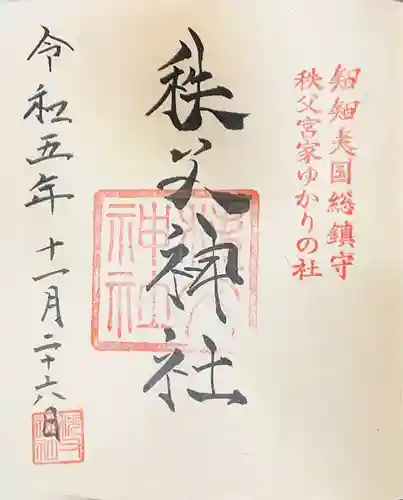 知知夫国総鎮守
秩父宮家ゆかりの社
秩父神社
令和五年 十一月二十六日